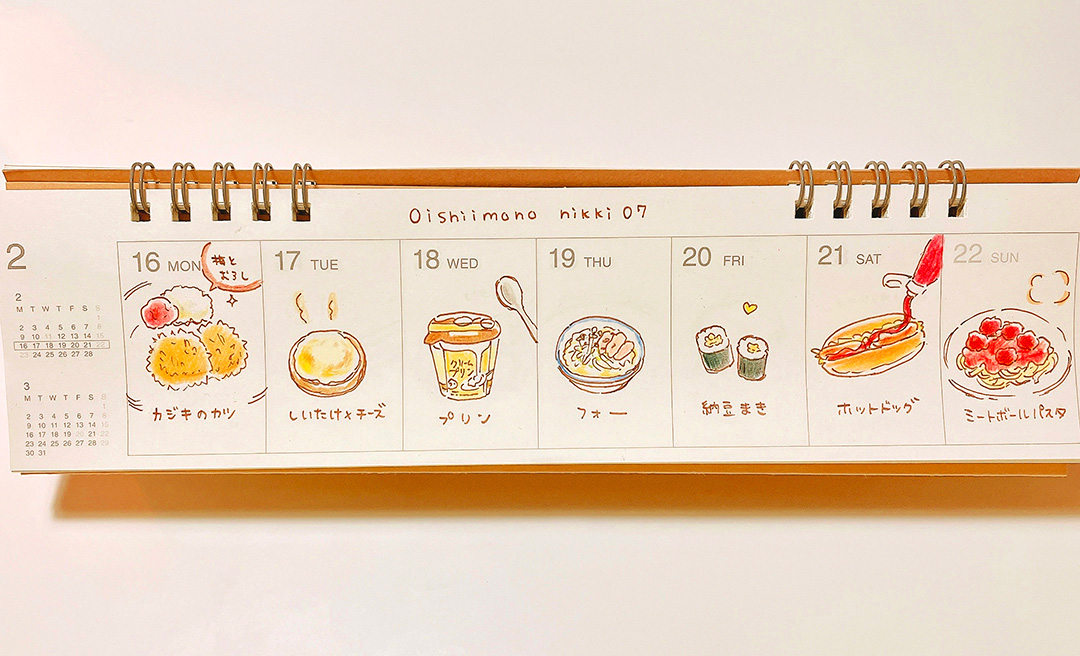 Oishiimono nikki 07
2
16 MON
17 TUE
18 WED
19 THU
20 FRI
21 SAT
22 SUN
梅と
おろし
クリーム
プリン
カジキのカツ
しいたけ×チーズ
プリン
フォー
納豆まき
ホットドッグ
ミートボールパスタ
2
M T W T F S S
1
2 3 4 5 6 7 8
9 10 11 12 13 14 15
16 17 18 19 20 21 22
23 24 25 26 27 28
3
M T W T F S S
1
2 3 4 5 6 7 8
9 10 11 12 13 14 15
16 17 18 19 20 21 22
23 24 25 26 27 28 29
30 31